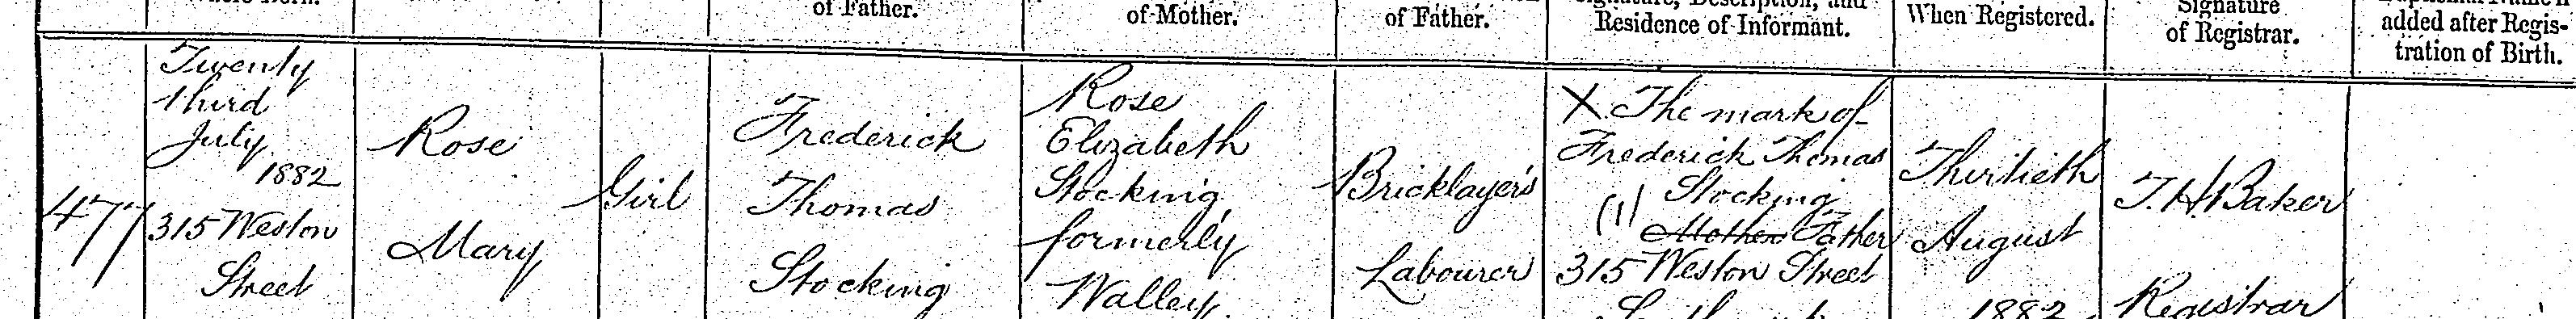 of Father.
of Mother.
of Father.
Signature, Description, and
Residence of Informant.
When Registered.
Signature
of Registrar.
added after Regis-
tration of Birth.
477
Twenty
third
July
1882
315 Weston
Street
Rose
Mary
Girl
Frederick
Thomas
Stocking
Rose
Elizabeth
Stocking
formerly
Walley
Bricklayer's
Labourer
X The mark of
Frederick Thomas
Stocking
(1)
Mother Father
315 Weston Street
Thirtieth
August
1882
T. H. Baker
Registrar